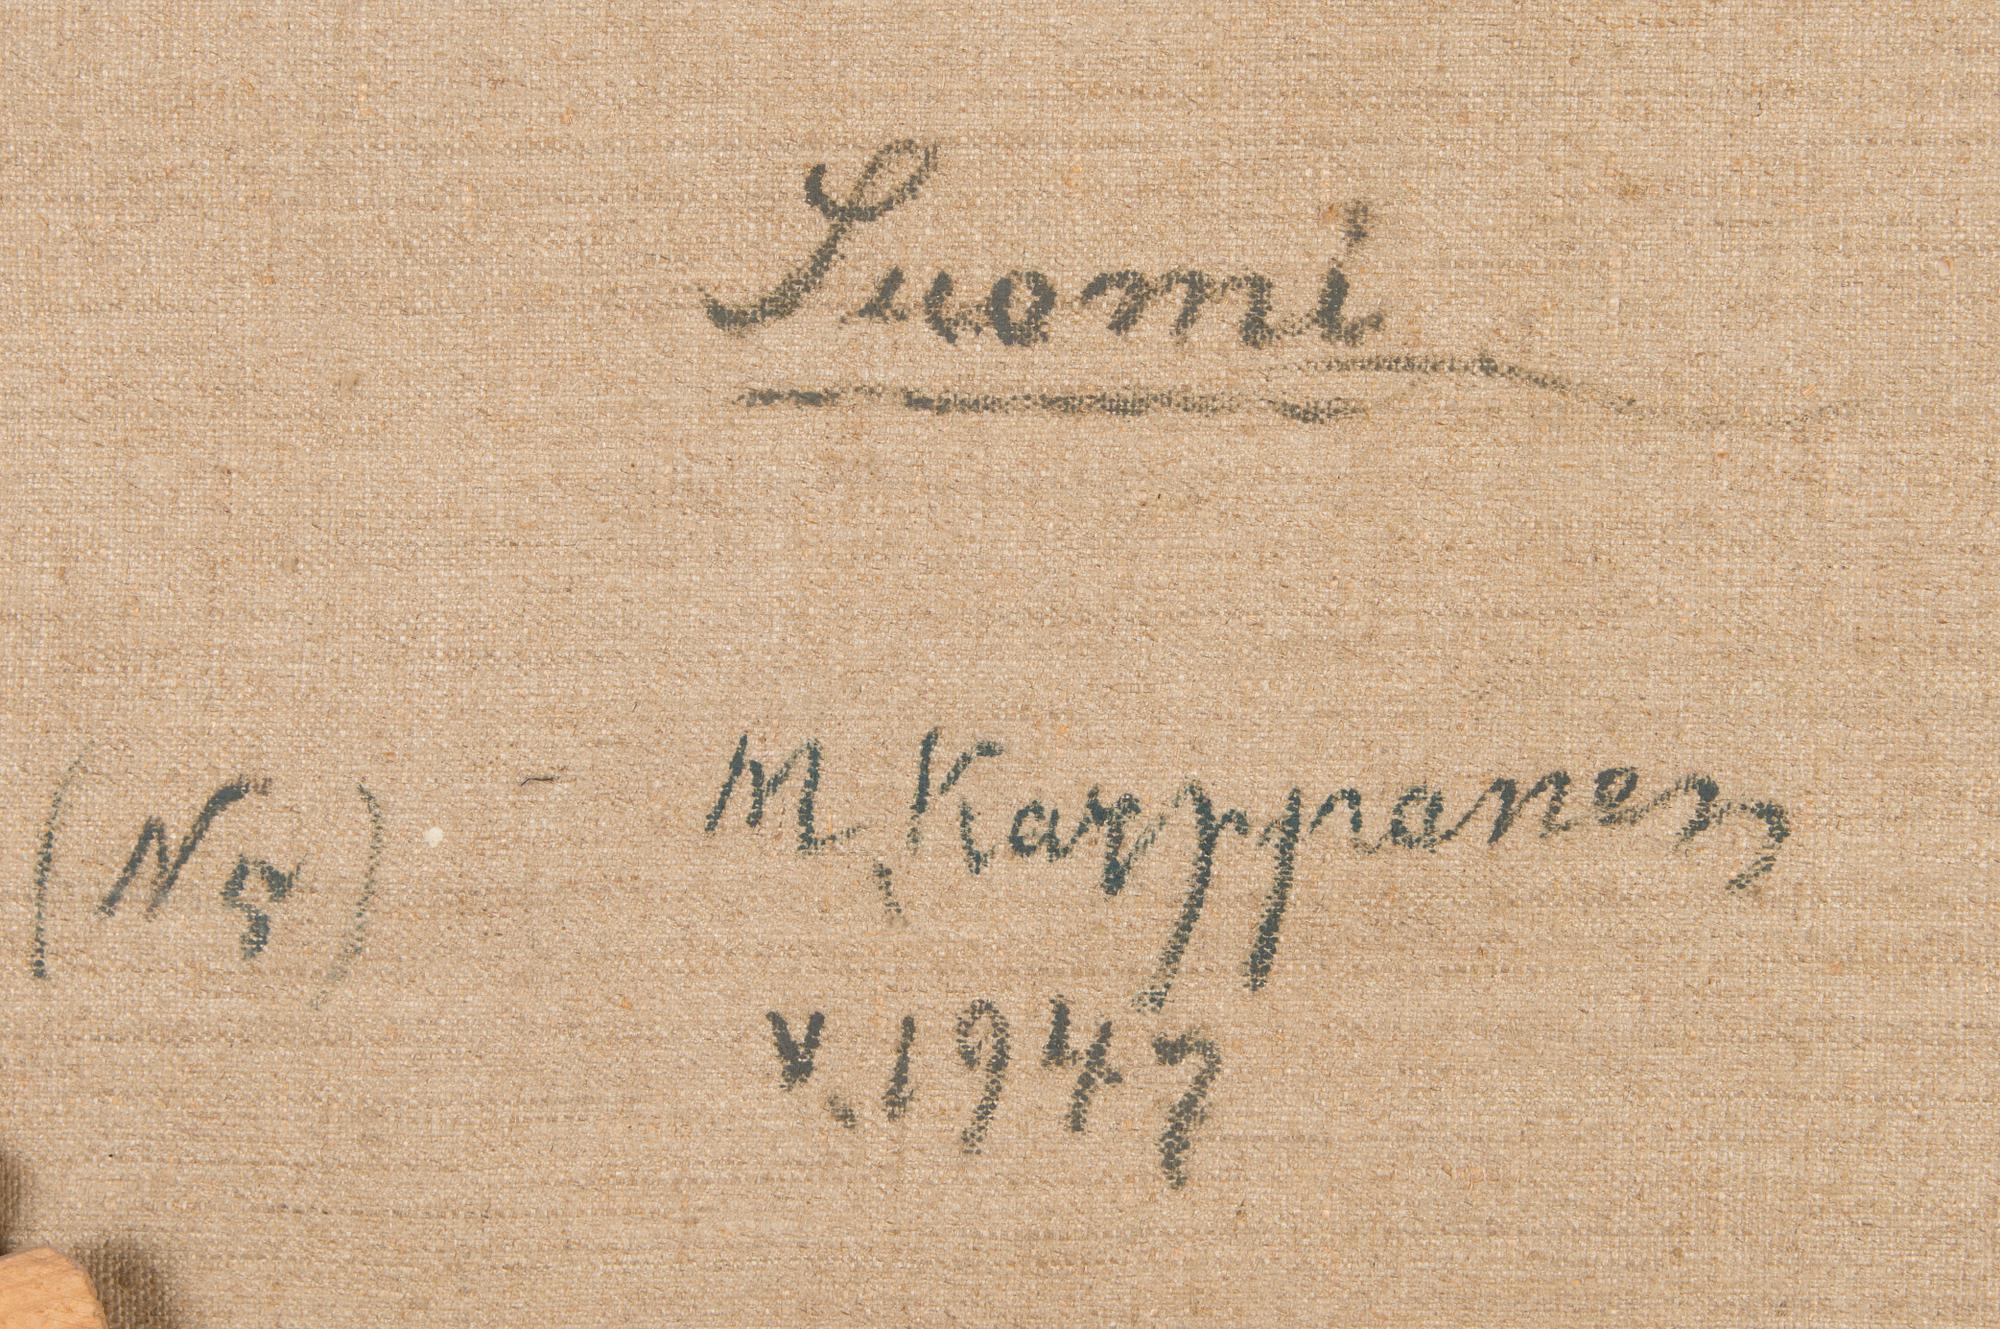 Suomi
(N 5) M. Kapppanen
v. 1947